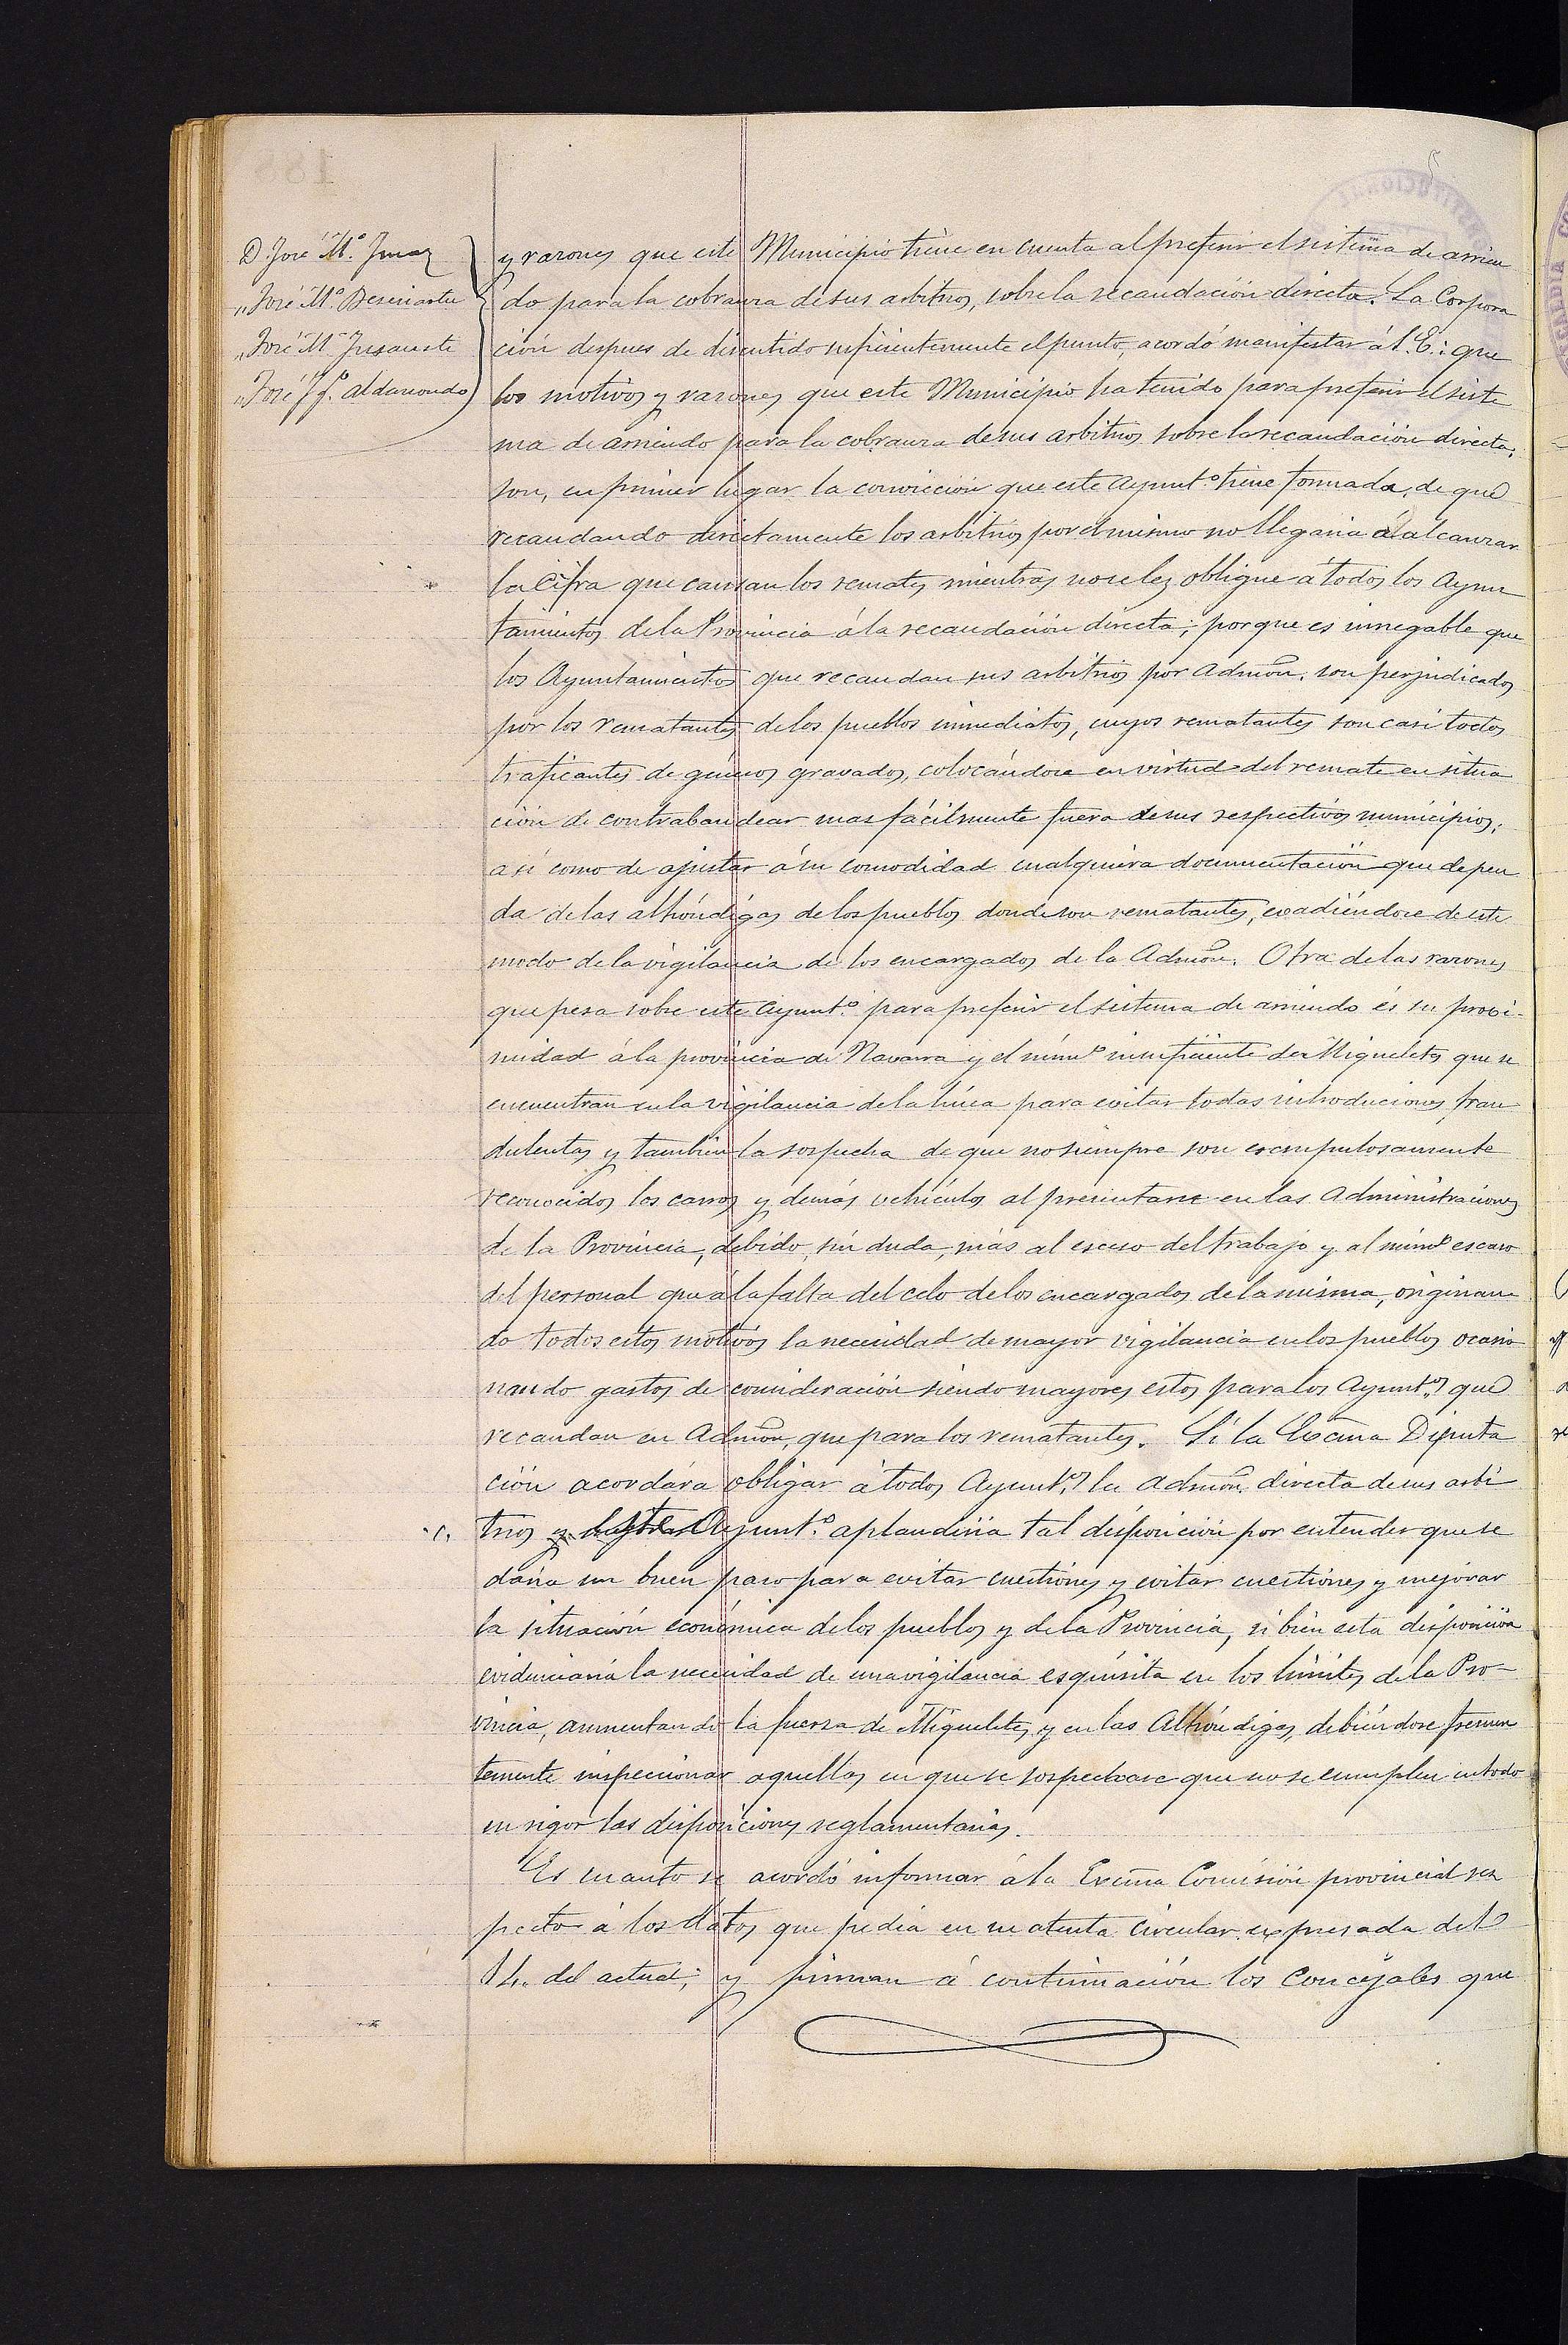 D. José M.ª
„ José M.ª Beseriartu
„ José M.ª Insausti
„ José Ig.º Aldamondo
y razones que este Municipio tiene en cuenta al preferir el sistema de arrien
do para la cobranza de sus arbitrios, sobre la recaudación directa. La Corpora
ción despues de discutido suficientemente el punto, acordó manifestar á S. E.: que
los motivos y razones que este Municipio ha tenido para preferir el siste
ma de arriendo para la cobranza de sus arbitrios sobre la recaudación directa,
son, en primer lugar la convicción que este Ayunt.º tiene formada, de que
recaudando directamente los arbitrios por el mismo no llegaria á alcanzar
la cifra que causan los remates mientras no se les obligue á todos los Ayun
tamientos de la Provincia á la recaudación directa; porque es innegable que
los Ayuntamientos que recaudan sus arbitrios por Admón. son perjudicados
por los rematantes de los pueblos inmediatos, cuyos rematantes son casi todos
traficantes de géneros gravados, colocándose en virtud del remate en situa
ción de contrabandear mas fácilmente fuera de sus respectivos municipios,
asi como de ajustar á su comodidad cualquiera documentación que depen
da de las alhóndigas de los pueblos donde son rematantes, evadiéndose de este
modo de la vigilancia de los encargados de la Admón. Otra de las razones
que pesa sobre este Ayunt.º para preferir el sistema de arriendo és su proxi-
midad á la provincia de Navarra y el núm.º insuficiente de Miqueletes que se
encuentran en la vigilancia de la línea para evitar todas introduciones frau
dulentas y también la sospecha de que no siempre son escrupulosamente
reconocidos los carros y demás vehículos al presentarse en las Administraciones
de la Provincia, debido, sin duda, más al esceso del trabajo y al núm.º escaso
del personal que á la falta del celo de los encargados de la misma, originan
do todos estos motivos la necesidad de mayor vigilancia en los pueblos ocasio
nando gastos de consideración siendo mayores estos para los Ayunt.os que
recaudan en Admón, que para los rematantes. Si la Excma Diputa
ción acordára obligar á todos Ayunt.os la Admón. directa de sus arbi
trios Ayunt.º aplaudiria tal disposición por entender que se
daria un buen paso para evitar cuestiones y evitar cuestiones y mejorar
la situación económica de los pueblos y de la Provincia, si bien esta disposición
evidenciaria la necesidad de una vigilancia esquisita en los límites de la Pro-
vincia, aumentando la fuerza de Miqueletes y en las Alhóndigas, debiéndose frecuen
temente inspeccionar aquellas en que se sospechase que no se cumplen en todo
su rigor las disposiciones reglamentarias.
Es cuanto se acordó informar á la Excma Comisión provincial res
pecto á los datos que pedia en su atenta circular expresada del
14. del actual; y firman á continuación los Concejales que